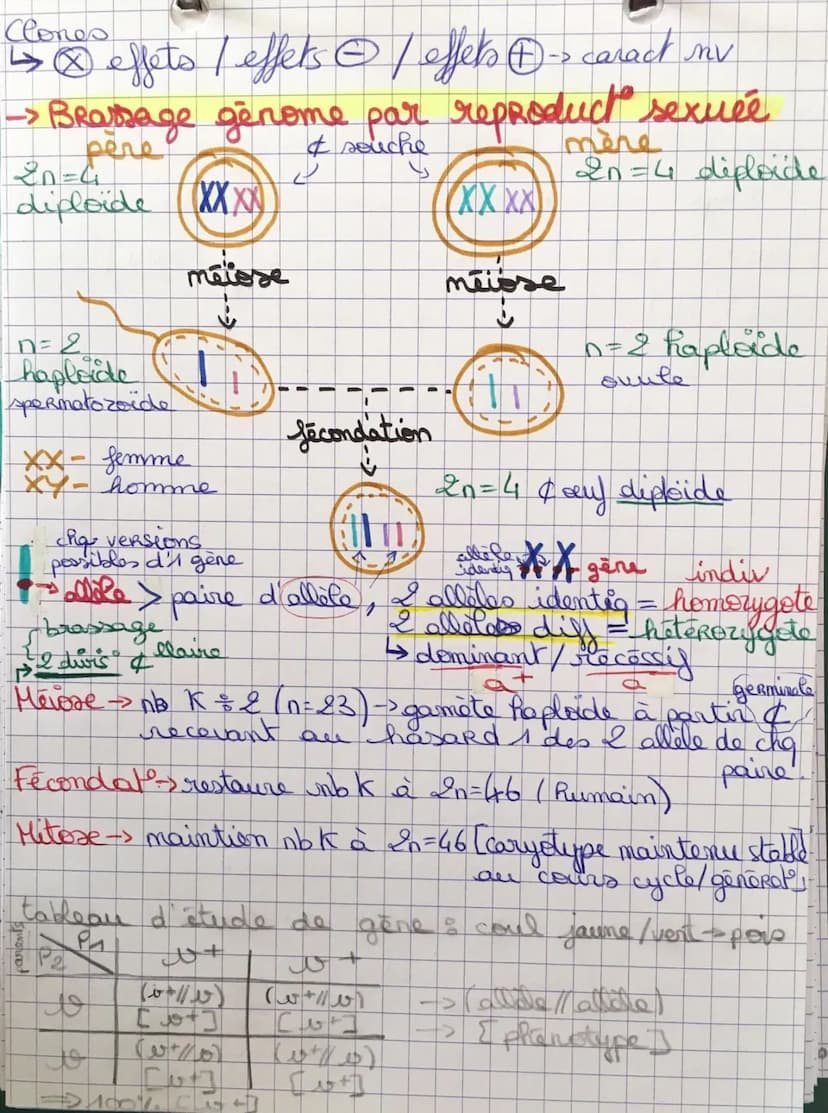 Clones
↳ ⊗ effets / effets ⊖ / effets ⊕ → caract nv
→ Brassage génome par reproduct° sexuée
père
¢ souche
mère
2n=4
diploïde
2n=4 diploïde
XX XX
XX XX
méiose
méiose
n=2
haploïde
spermatozoïde
n=2 haploïde
ovule
fécondation
XX - femme
XY - homme
2n=4 ¢ œuf diploïde
chq versions
possibles d'1 gène
→ allèle > paire d'allèle, 2 allèles identiq = homozygote
allèle
identiq
gène
indiv
2 allèles diff = hétérozygote
brassage
→ 2 divis° ¢ llaire
↳ dominant / récéssif
a+
a
Méiose → nb K ÷ 2 (n=23) → gamète haploïde à partir ¢
germinale
recevant au hasard 1 des 2 allèle de chq
paire.
Fécondat° → restaure nb K à 2n=46 (humain)
Mitose → maintion nb K à 2n=46 [caryotype maintenu stable
au cours cycle/générat°]
tableau d'étude de gène : coul jaune/vert → pois
parents
P1
P2
v+
v+
v
(v+//v)
(v+//v)
[v+]
[v+]
→ (allèle // allèle)
→ [phénotype]
v
(v+//v)
(v+//v)
[v+]
[v+]
⇒ 100% [v+]